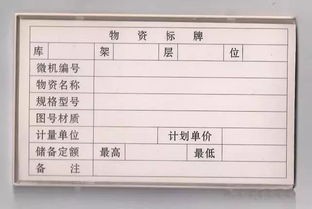 物资标牌
库 架 层 位
微机编号
物资名称
规格型号
图号材质
计量单位 计划单价
储备定额 最高 最低
备注